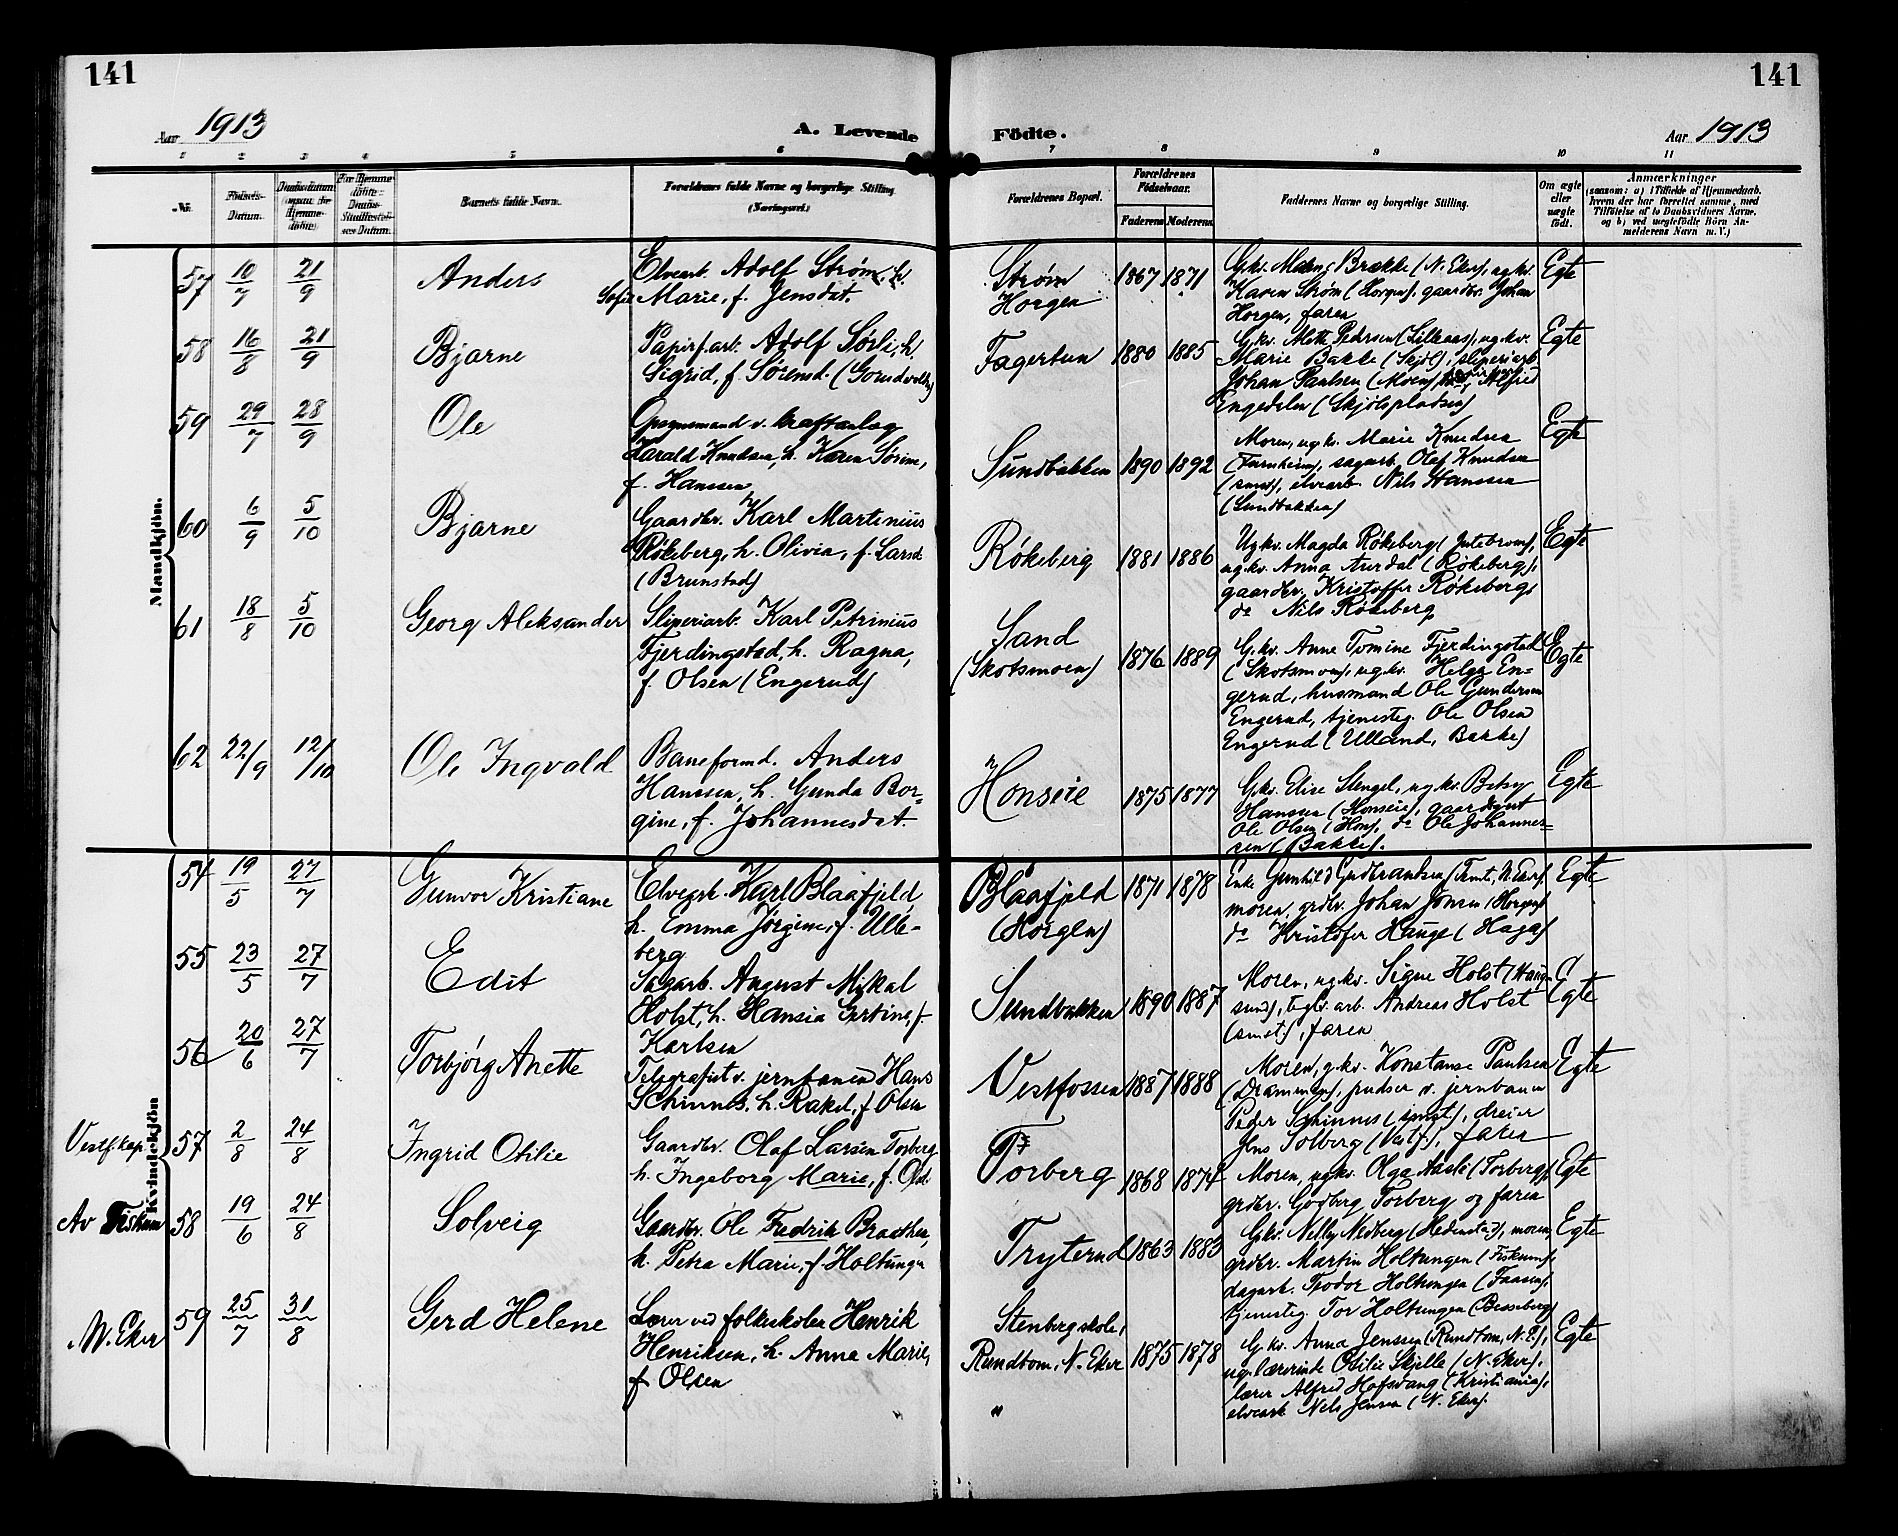 141
141
Aar 1913
A. Levende
Födte.
Aar 1913
1 2 3 4 5 6 7 8 9 10 11
Nr.
Fødsels-Datum.
Barnets fulde Navn.
Forældrenes fulde Navne og borgerlige Stilling
(Næringsvei.)
Forældrenes Bopæl.
Forældrenes Fødselsaar.
Faderens Moderens
Faddernes Navne og borgerlige Stilling.
Om ægte eller uægte født.
Anmærkninger
(saasom: a) i Tilfælde af Hjemmedaab.
hvem der har forrettet samme, med
Tilføielse af to Daabsvidners Navne.
og b) ved uægtefødte Börn An-
melderens Navn m. V.)
Mandkjön.
57 10/7 21/9 Anders
Elvearb. Adolf Strøm, h.
Sofie Marie, f. Jensdat.
Strøm
Horgen
1867 1871
Brække (N. Eker), ugkv.
Karen Strøm (Horgen), gaardbr. Johan
Horgen, faren
Egte
58 16/8 21/9 Bjarne
Papirf.arb. Adolf Sørli, h.
Sigrid, f. Sørensd.
Fagertun
1880 1885
Pedersen ugkv.
Marie Bakke (Skjøl), sliperiarb.
Johan Paulsen (Moen), Alfred
Engedalen (Skjølspladsen)
Egte
59 29/7 28/9 Ole
Opsynsmand v. kraftanlæg
Harald Knudsen, h. Karen Sørine,
f. Hanssen
Sundbakken
1890 1892
Moren, ugkv. Marie Knudsen
sagarb. Olaf Knudsen
elvearb. Nils Hanssen
(Sundbakken)
Egte
60 6/9 5/10 Bjarne
Gaardbr. Karl Martinius
Røkeberg, h. Olivia, f. Larsd.
(Brunstad)
Røkeberg
1881 1886
Ugkv. Magda Røkeberg
ugkv. Anna Aurdal (Røkeberg),
gaardbr. Kristoffer Røkeberg,
do Nils Røkeberg
Egte
61 18/8 5/10 Georg Aleksander
Sliperiarb. Karl Petrinius
Fjerdingstad, h. Ragna,
f. Olsen (Engerud)
Sand
(Skotsmoen)
1876 1889
G.kv. Anne Tomine Fjerdingstad
(Skotsmoen), ugkv. Helga En-
gerud, husmand Ole Gundersen
Engerud, tjenestg. Ole Olsen
Engerud (Ulland, Bakke)
Egte
62 22/9 12/10 Ole Ingvald
Baneformd. Anders
Hanssen, h. Gunda Bor-
gine, f. Johannesdat.
Honseie
1875 1877
G.kv. Elise Stengel, ugkv. Betsy
Hansen (Honseie), gaardbgut
Ole Olsen (Hon), do Ole Johannes-
sen (Bakke).
Egte
Kvindekjön
54 19/5 27/7 Gunvor Kristiane
Elvegrb. Karl Blaafjeld,
h. Emma Jørgine, f. Ulle-
berg
Blaafjeld
(Horgen)
1871 1878
Enke Gunhild Gudbrandsen
moren, grdbr. Johan Jonsen (Horgen)
do Kristofer Hauge (Haga)
Egte
55 23/5 27/7 Edit
Sagarb. August Mikal
Holst, h. Hansia Gertine, f.
Karlsen
Sundbakken
1890 1887
Moren, ugkv. Signe Holst (Haug-
sund), teglv.arb. Andreas Holst
(smst.), faren
Egte
56 20/6 27/7 Torbjørg Anette
Telegrafist v. jernbanen Hans
Schinnes, h. Rakel, f. Olsen
Vestfossen
1887 1888
Moren, g.kv. Konstanse Paulsen
(Drammen), pudser v. jernbanen
Peder Schinnes (smst.), dreier
Jens Solberg (Vestf.), faren
Egte
Vestf.kap. 57 2/8 24/8 Ingrid Otilie
Gaardbr. Olaf Larsen Torberg
h. Ingeborg Marie, f. Olsd.
Torberg
1868 1874
Moren, ugkv. Olga Aasli (Torberg),
grdbr. Godberg Torberg og faren
Egte
Av Fiskum 58 19/6 24/8 Solveig
Gaardbr. Ole Fredrik Braathen,
h. Petra Marie, f. Holtungen
Tryterud
1863 1883
G.kv. Nelly Nedberg (Hedenstad), moren,
grdbr. Martin Holtungen (Fiskum),
dagarb. Teodor Holtungen
tjenestg. Tor Holtungen (Besseberg)
Egte
N. Eker 59 25/7 31/8 Gerd Helene
Lærer ved folkeskolen Henrik
Henriksen, h. Anna Marie,
f. Olsen
Stenberg skole,
Rundtom, N. Eker
1875 1878
G.kv. Anna Jenssen (Rundtom, N.E.),
ug. lærerinde Otilie Skjelle (N. Eker),
lærer Alfred Hofsvang (Kristiania),
elvearb. Nils Jensen (N. Eker).
Egte
"